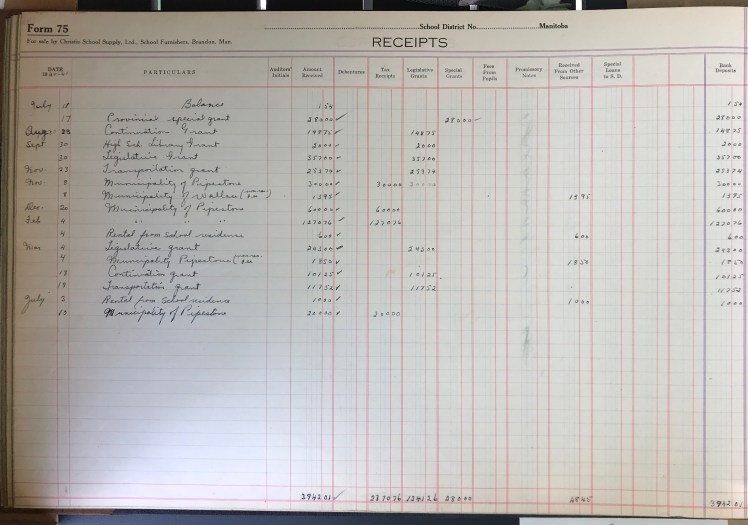 Form 75 School District No. Manitoba
For sale by Christie School Supply, Ltd., School Furnishers, Brandon, Man.
RECEIPTS
DATE PARTICULARS Auditors' Initials Amount Received Debentures Tax Receipts Legislative Grants Special Grants Fees From Pupils Promissory Notes Received From Other Sources Special Loans to S. D. Bank Deposits
July 18 Balance 1 50 1 50
17 Provincial special grant 280 00 ✓ 280 00 ✓ 280 00
Aug. 23 Continuation Grant 148 75 ✓ 148 75 148 75
Sept. 30 High Sch Library Grant 20 00 ✓ 20 00 20 00
30 Legislative Grant 357 00 ✓ 357 00 357 00
Nov. 23 Transportation grant 253 74 ✓ 253 74 253 74
Nov. 8 Municipality of Pipestone 300 00 ✓ 300 00 300 00
8 Municipality of Wallace 13 95 ✓ 13 95 13 95
Dec. 20 Municipality of Pipestone 600 00 ✓ 600 00 600 00
Feb 4 " " " 1270 76 ✓ 1270 76 1270 76
4 Rental from school residence 6 00 ✓ 6 00 6 00
Mar 4 Legislative grant 245 00 ✓ 245 00 245 00
4 Municipality Pipestone 18 50 ✓ 18 50 18 50
18 Continuation grant 101 25 ✓ 101 25 101 25
19 Transportation grant 117 52 ✓ 117 52 117 52
July 3 Rental from school residence 10 00 ✓ 10 00 10 00
10 Municipality of Pipestone 200 00 ✓ 200 00
3942 01 ✓ 2370 76 1241 26 280 00 48 45 3942 01